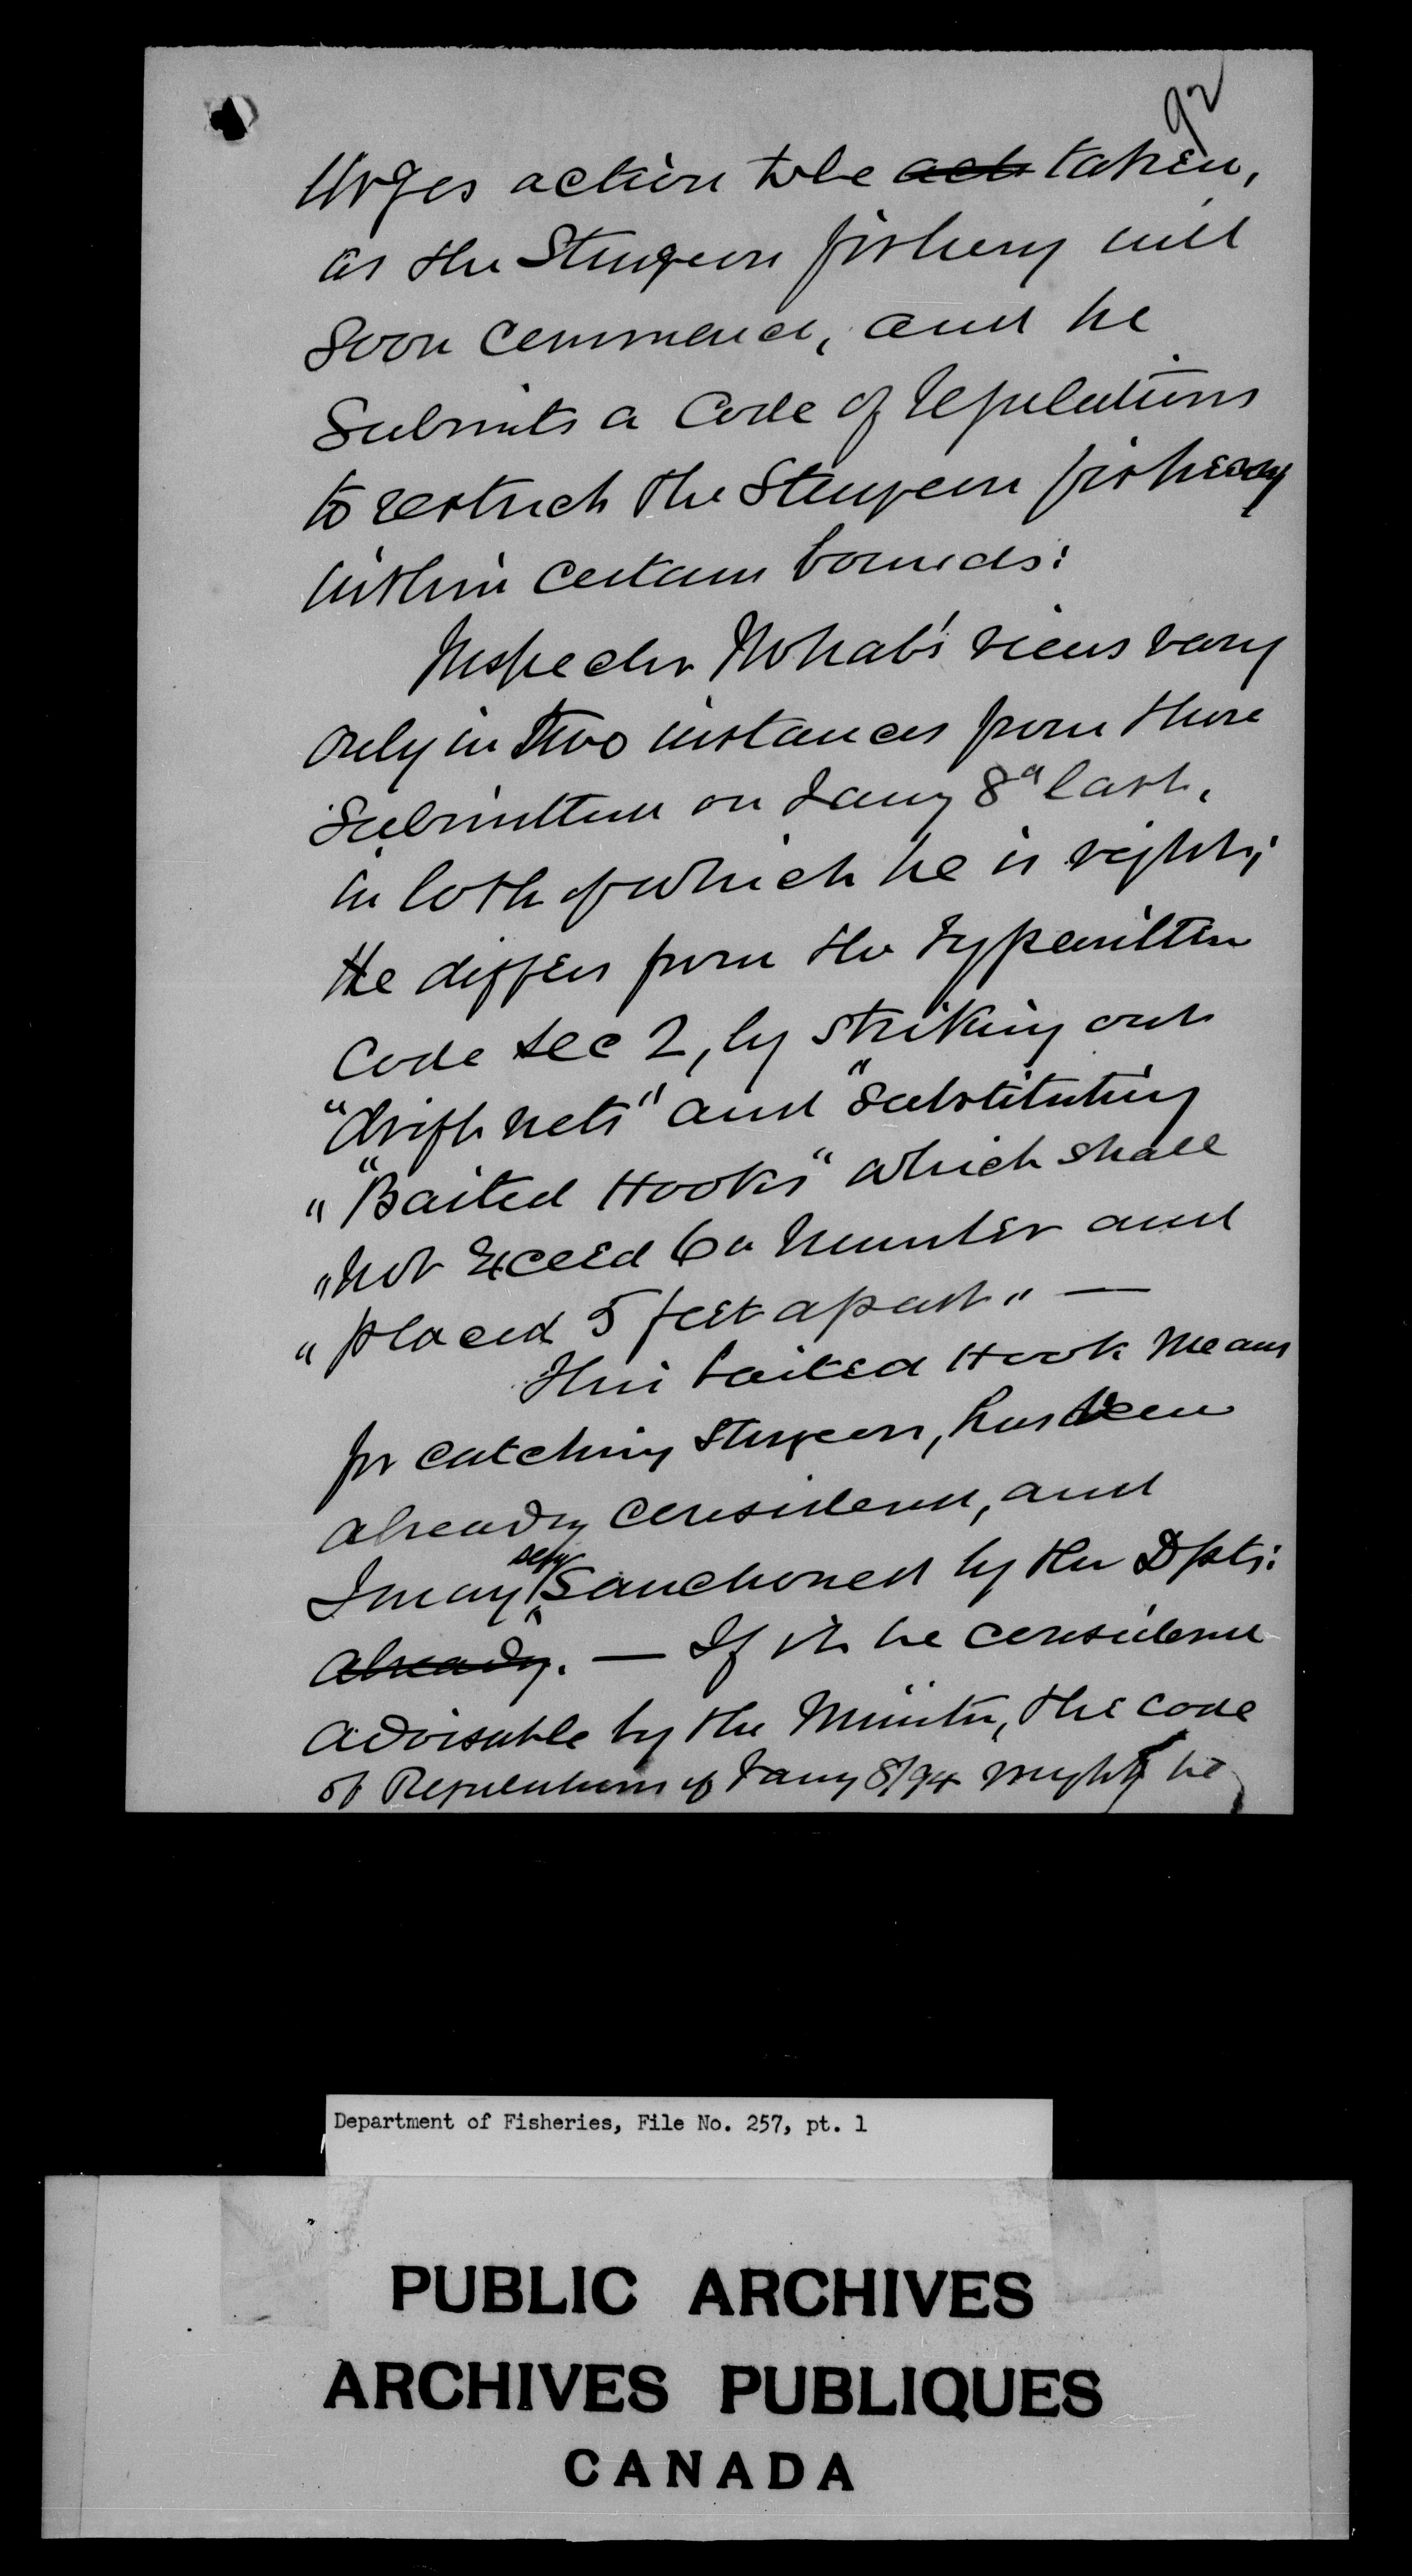 92
Urges action to be acts taken,
as the Sturgeon fishery will
soon commence, and he
submits a Code of Regulations
to restrict the Sturgeon fishery
within certain bounds:
Inspector McNab's views vary
only in two instances from those
submitted on Jany 8th last,
in both of which he is right;
He differs from the typewritten
Code sec 2, by striking out
"drift nets" and "substituting
" "Baited Hooks" which shall
" not exceed 6 in number and
" placed 5 feet apart" —
This baited Hook means
for catching Sturgeon, has been
already considered, and
I may say Sanctioned by the Dpt;
already. — If it be considered
advisable by the Minister, the code
of Regulations of Jany 8/94 might be
Department of Fisheries, File No. 257, pt. 1
PUBLIC ARCHIVES
ARCHIVES PUBLIQUES
CANADA